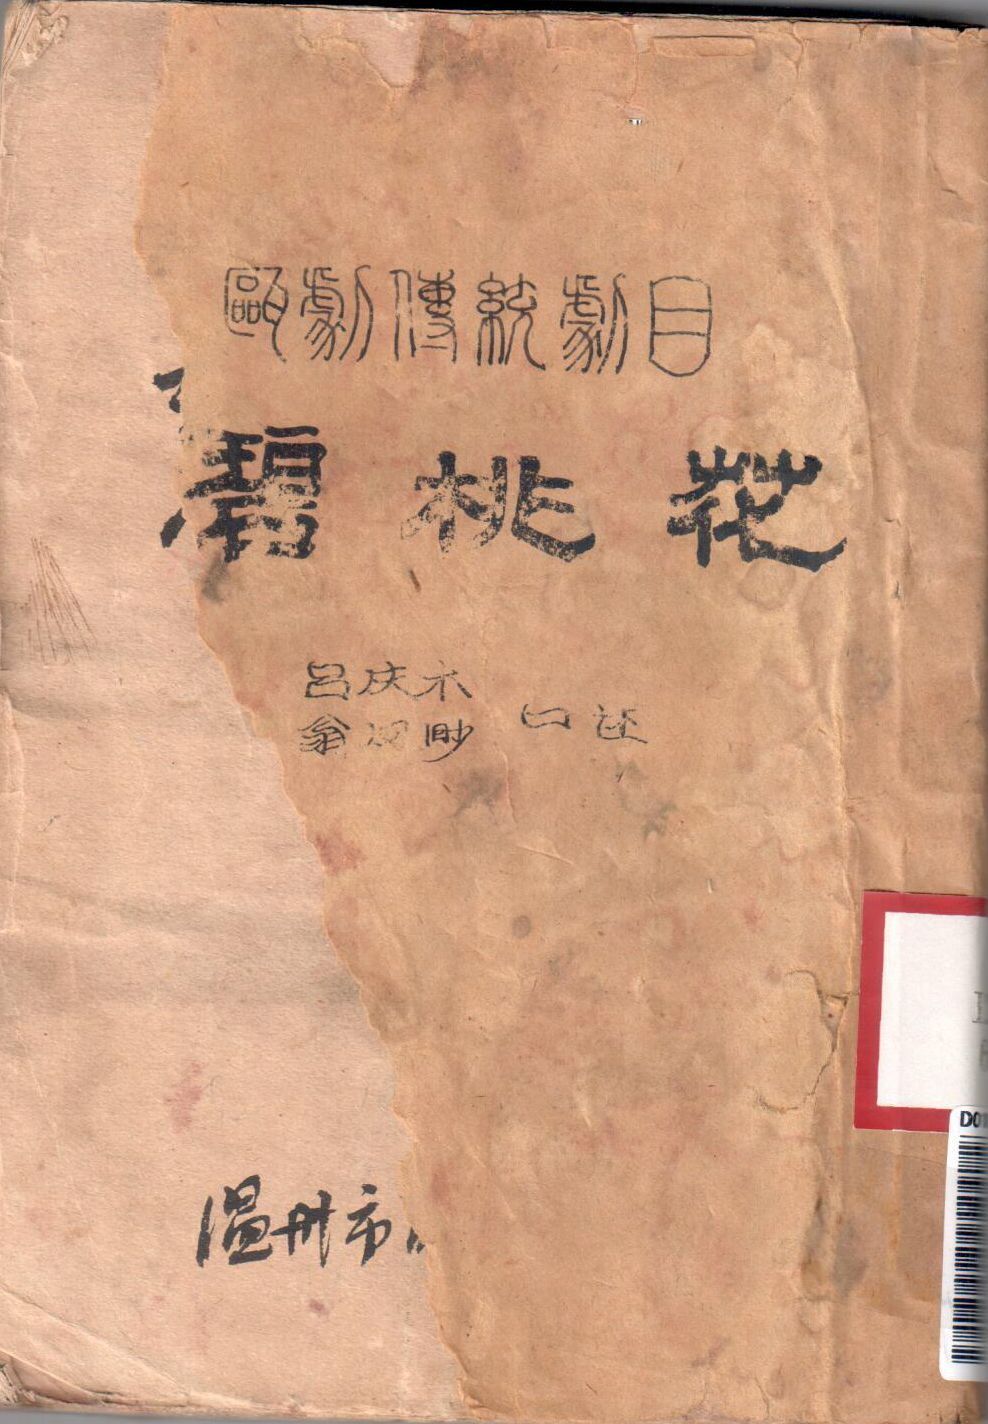 甌劇傳統劇目
碧桃花
呂庆木
翁 眇 口述
温州市
D01